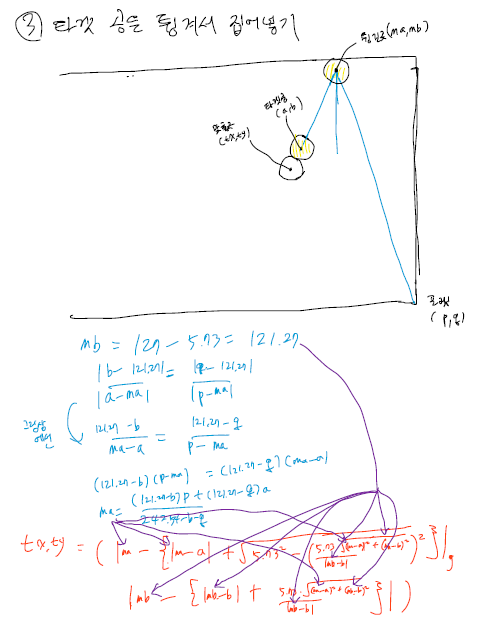 ③ 타겟 공을 튕겨서 집어넣기
튕긴공(ma,mb)
타겟공
(a,b)
(tx,ty)
포켓
(p,q)
mb = 127 - 5.73 = 121.27
|b-121.27| / |a-ma| = |q-121.27| / |p-ma|
그림상
(121.27-b) / (ma-a) = (121.27-q) / (p-ma)
(121.27-b)(p-ma) = (121.27-q)(ma-a)
ma = ((121.27-b)p + (121.27-q)a) / (242.54-b-q)
tx,ty = ( |m - { |m-a| + √(5.73² - (5.73·√((m-a)²+(mb-b)²) / |mb-b|)²) } | ,
|mb - { |mb-b| + 5.73·√((m-a)²+(mb-b)²) / |mb-b| } | )